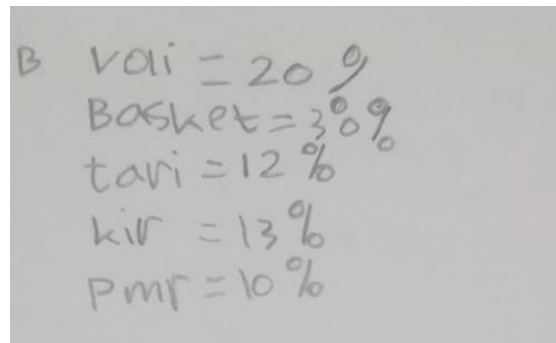 B voli = 20 %
Basket = 30 %
tari = 12 %
kir = 13 %
pmr = 10 %